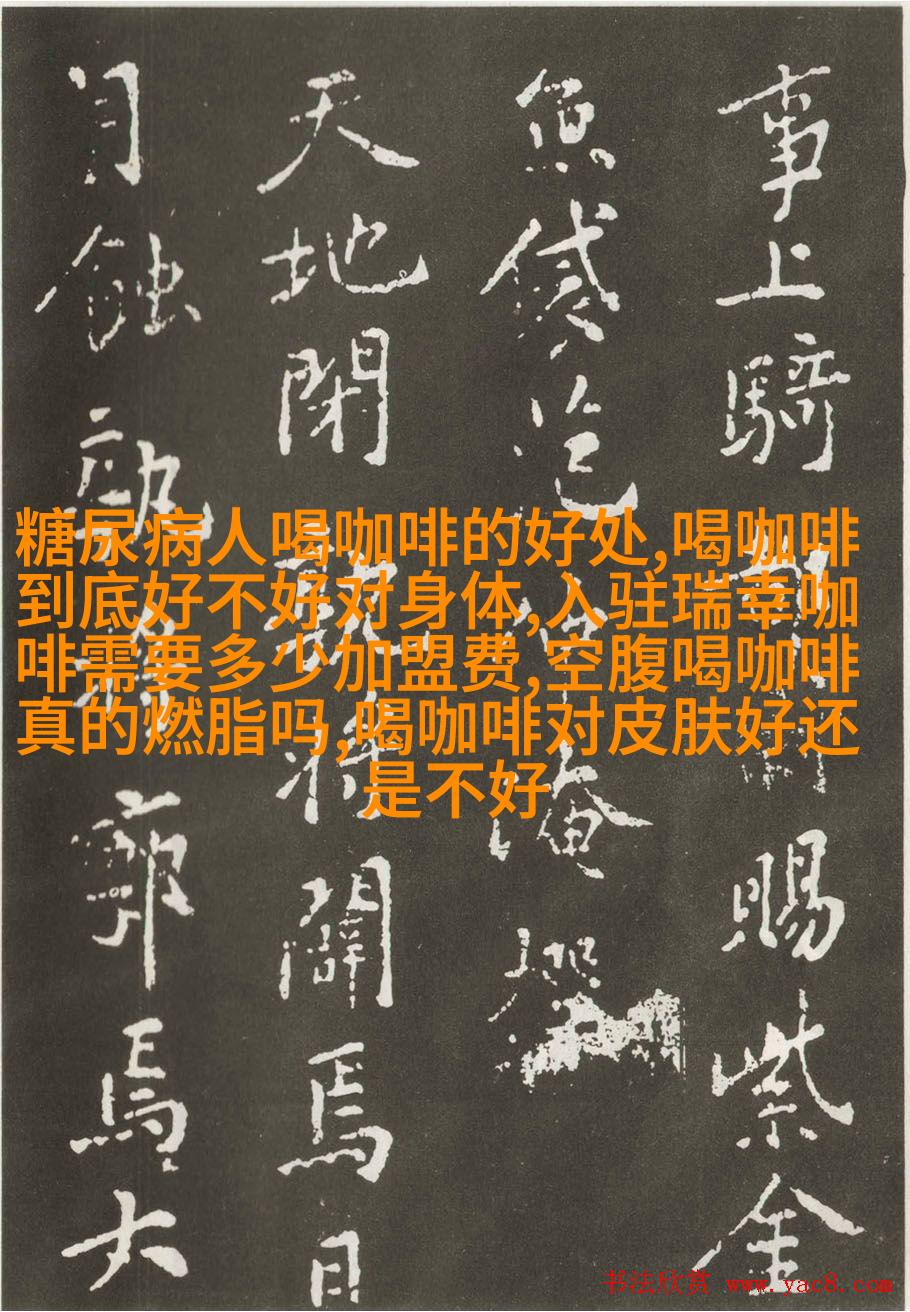 事上騎賜紫金
魚袋范仲淹撰
天地閉孰將闢焉日
月蝕孰將廓焉大
糖尿病人喝咖啡的好处,喝咖啡
到底好不好对身体,入驻瑞幸咖
啡需要多少加盟费,空腹喝咖啡
真的燃脂吗,喝咖啡对皮肤好还
是不好
书法欣赏 www.yac8.com